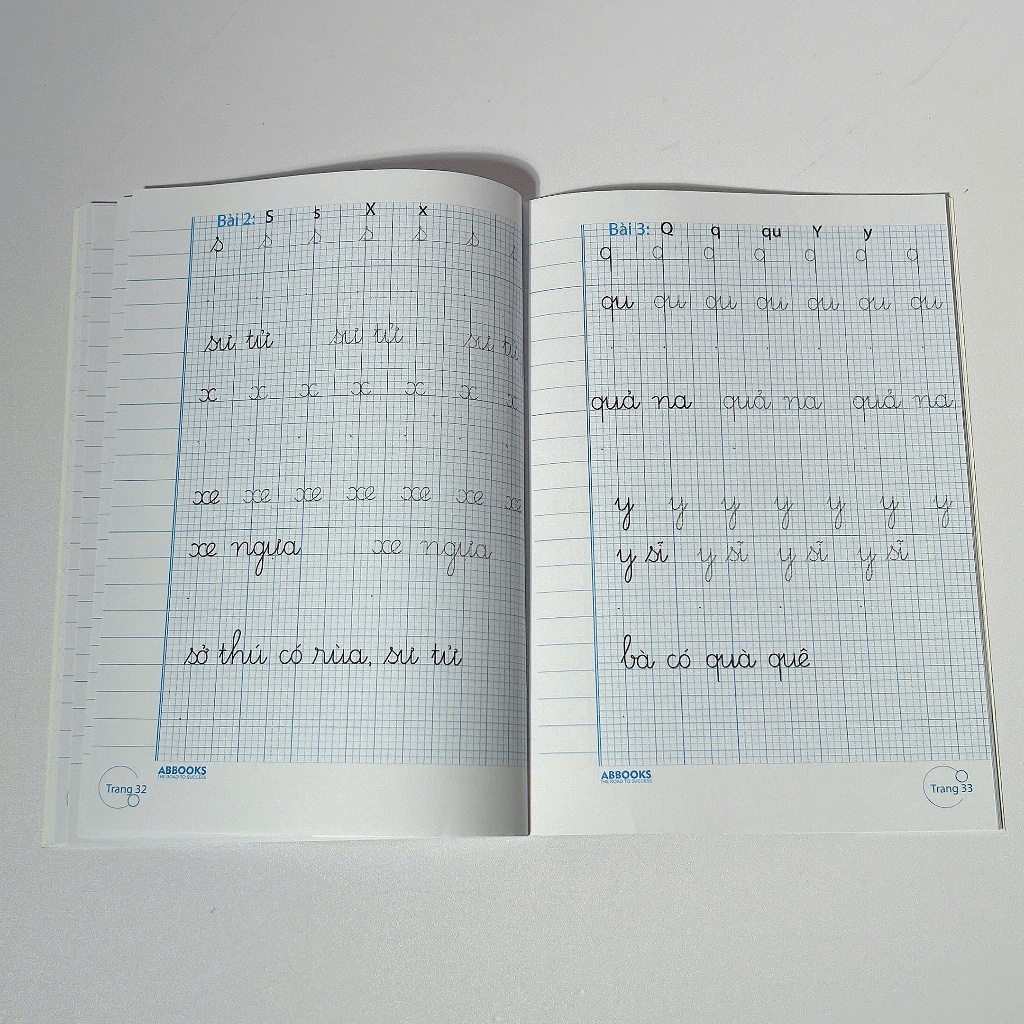 Bài 2: S s X x
s s s s s s s
sư tử sư tử sư tử
x x x x x x x
xe xe xe xe xe xe xe
xe ngựa xe ngựa
sở thú có rùa, sư tử
ABBOOKS
THE ROAD TO SUCCESS
Trang 32
Bài 3: Q q qu Y y
q q q q q q q
qu qu qu qu qu qu qu
quả na quả na quả na
y y y y y y y
y sĩ y sĩ y sĩ y sĩ
bà có quà quê
ABBOOKS
THE ROAD TO SUCCESS
Trang 33